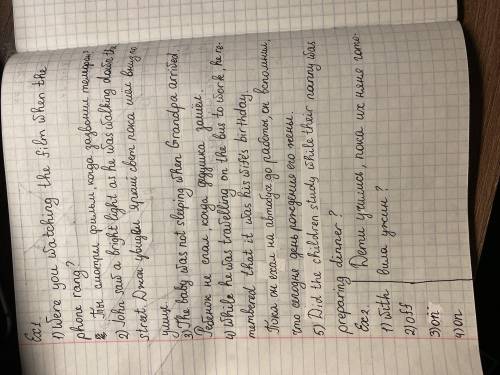 Ex1.
1) Were you watching the film when the
phone rang?
Ты смотрел фильм, когда зазвонил телефон?
2) John saw a bright light as he was walking down the
street. Джон увидел яркий свет пока шёл вниз по
улице.
3) The baby was not sleeping when Grandpa arrived.
Ребёнок не спал когда дедушка зашёл.
4) While he was travelling on the bus to work, he re-
membered that it was his wife's birthday.
Пока он ехал на автобусе до работы, он вспомнил,
что сегодня день рождения его жены.
5) Did the children study while their nanny was
preparing dinner?
Дети учились, пока их няня гото-
Ex2.
1) with вила ужин?
2) off
3) on
4) on